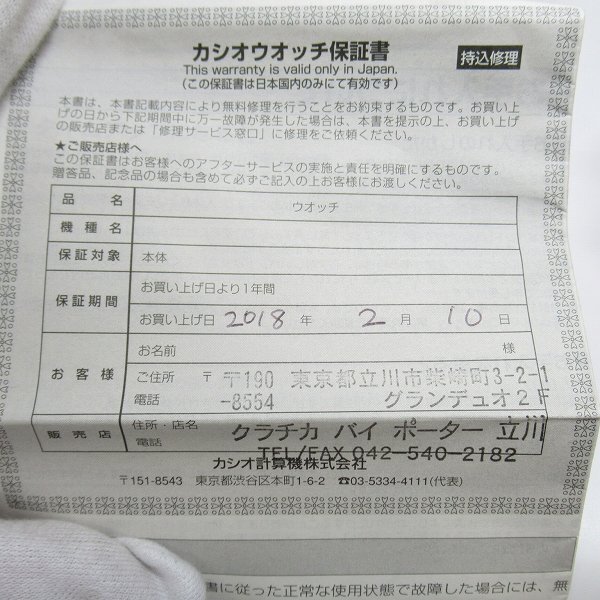 カシオウオッチ保証書
持込修理
This warranty is valid only in Japan.
(この保証書は日本国内のみにて有効です)
本書は、本書記載内容により無料修理を行うことをお約束するものです。お買い上
げの日から下記期間中に万一故障が発生した場合は、本書を提示の上、お買い上げ
の販売店または「修理サービス窓口」に修理をご依頼ください。
★ご販売店様へ
この保証書はお客様へのアフターサービスの実施と責任を明確にするものです。
贈答品、記念品の場合も含めて必ずご記入の上お客様にお渡しください。
品名 ウオッチ
機種名
保証対象 本体
保証期間 お買い上げ日より1年間
お買い上げ日 2018 年 2 月 10 日
お客様 お名前 様
ご住所 〒 〒190 東京都立川市柴崎町3-2-1
電話 -8554 グランデュオ2F
販売店 住所・店名
電話 クラチカ バイ ポーター 立川
TEL/FAX 042-540-2182
カシオ計算機株式会社
〒151-8543 東京都渋谷区本町1-6-2 ☎03-5334-4111(代表)
書に従った正常な使用状態で故障した場合には、無